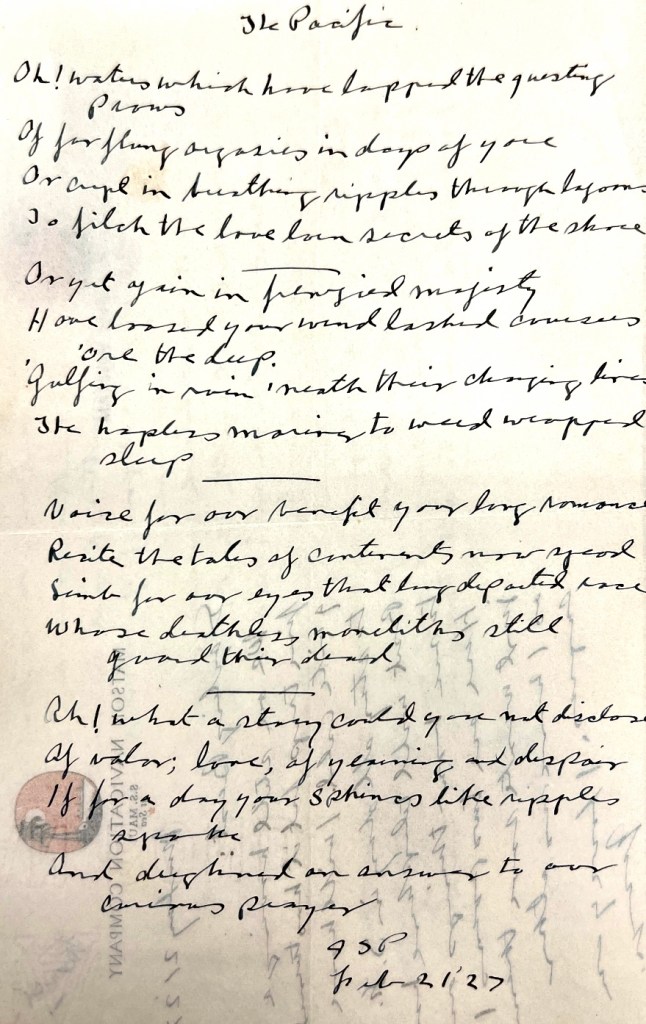 The Pacific.
Oh! waters which have lapped the questing
Prows
Of far flung argosies in days of yore
Or crept in breathing ripples through lagoons
To filch the love lorn secrets of the shore
Or yet again in frenzied majesty
Have loosed your wind lashed coursers
'ore the deep.
Gulfing in ruin 'neath their charging lines
The hapless mariner to weed wrapped
sleep
Voice for our benefit your long romance
Recite the tales of continents now
for our eyes that long departed race
Whose deathless monoliths still
guard their dead
Ah! what a story could you not disclose
Of valor, love, of yearning and despair
If for a day your Sphinx like ripples
spoke
And deigned an answer to our
curious prayer
ASP
Feb 21 '27
MATSON NAVIGATION COMPANY